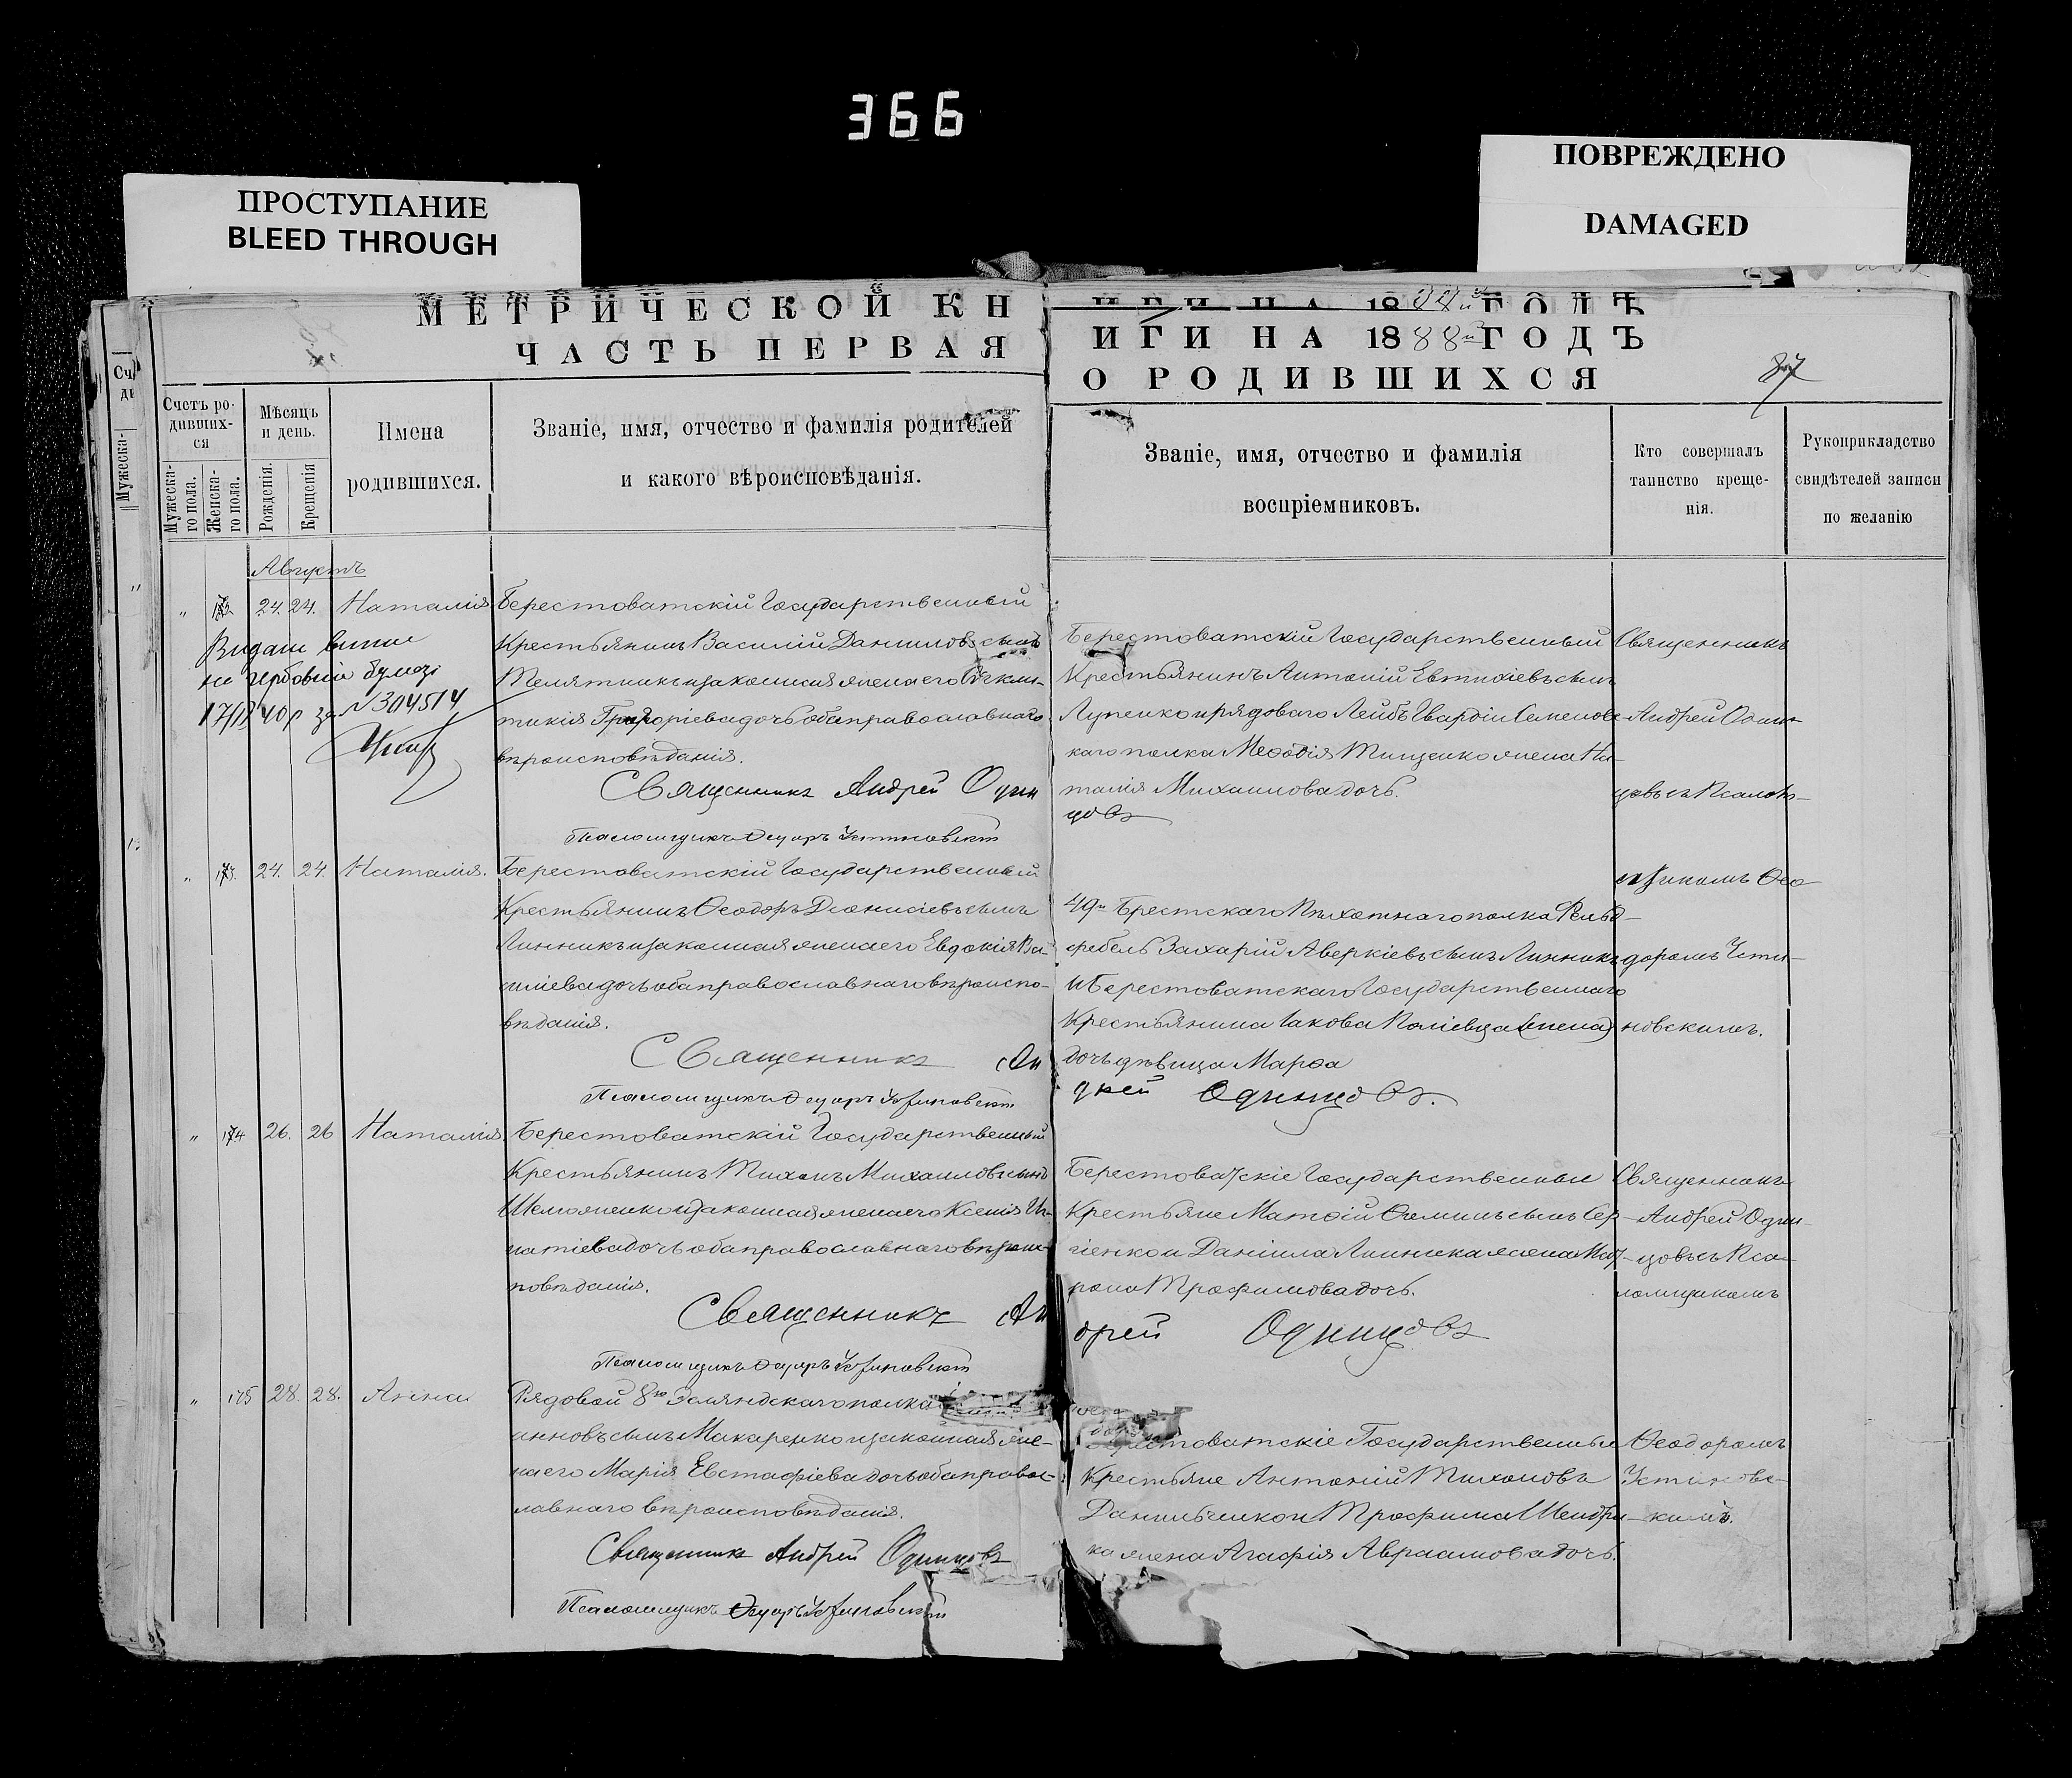 366
ПРОСТУПАНИЕ
BLEED THROUGH
ПОВРЕЖДЕНО
DAMAGED
МЕТРИЧЕСКОЙ КН
ИГИ НА 1888й ГОДЪ
ЧАСТЬ ПЕРВАЯ
О РОДИВШИХСЯ
87
Счетъ ро-
дивших-
ся
Мужеска-
го пола.
Женска-
го пола.
Мѣсяцъ
и день.
Рожденія.
Крещенія
Имена
родившихся.
Званіе, имя, отчество и фамилія родителей
и какого вѣроисповѣданія.
Званіе, имя, отчество и фамилія
воспріемниковъ.
Кто совершалъ
таинство креще-
нія.
Рукоприкладство
свидѣтелей записи
по желанію
Августъ
" 172 24. 24. Наталія
Берестоватскій Государственный
Крестьянинъ Василій Даниловъ сынъ
Телятникъ и законная жена его
Григоріева дочь оба православнаго
вѣроисповѣданія.
Священникъ Андрей Один
цовъ
Псаломщикъ Ѳедоръ Устиновскій
№ 304514
Берестоватскій Государственный
Крестьянинъ Антоній Евтихіевъ сынъ
Луценко и рядоваго Лейбъ Гвардіи Семенов-
каго полка Меѳодія Тищенко жена На-
талія Михаилова дочь.
Священникъ
Андрей Один-
цовъ съ Псалом-
щикомъ Ѳео-
доромъ Усти-
новскимъ.
" 173. 24. 24. Наталія.
Берестоватскій Государственный
Крестьянинъ Ѳеодоръ Діонисіевъ сынъ
Линникъ и законная жена его Евдокія Ва-
силіева дочь оба православнаго вѣроиспо-
вѣданія.
Священникъ Ан
дрей Одинцовъ.
Псаломщикъ Ѳедоръ Устиновскій
49го Брестскаго Пѣхотнаго полка Фельд-
фебель Захарій Аверкіевъ сынъ Линникъ
и Берестоватскаго Государственнаго
Крестьянина Іакова
дочь дѣвица Марѳа
" 174 26. 26 Наталія
Берестоватскій Государственный
Крестьянинъ Тихонъ Михаиловъ сынъ
Шеложенко и законная жена его Ксенія Иг-
натіева дочь оба православнаго вѣроис-
повѣданія.
Священникъ Ан
дрей Одинцовъ
Псаломщикъ Ѳедоръ Устиновскій
Берестоватскіе Государственные
Крестьяне Матѳій Ѳоминъ сынъ Сер-
гіенко и Даніила Линника жена Мат-
рона Трофимова дочь.
Священникъ
Андрей Один-
цовъ съ Пса-
ломщикомъ
Ѳеодоромъ
Устиновс-
кимъ.
" 175 28. 28. Анна
Рядовой 8го Эстляндскаго полка
анновъ сынъ Макаренко и законная же-
на его Марія Евстафіева дочь оба правос-
лавнаго вѣроисповѣданія.
Священникъ Андрей Одинцовъ
Псаломщикъ Ѳедоръ Устиновскій
Берестоватскіе Государственные
Крестьяне Антоній Тихоновъ
Данильченко и Трофима Шендри-
ка жена Агафія Авраамова дочь.